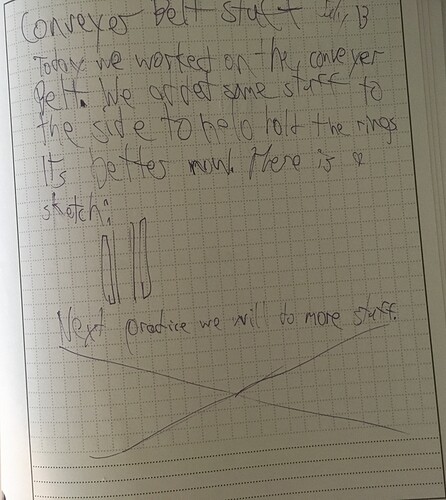 Conveyer belt stuff July 13
Today we worked on the conveyer
Belt. We added some stuff to
the side to help hold the rings
Its better now. Here is a
sketch:
Next practice we will do more stuff.